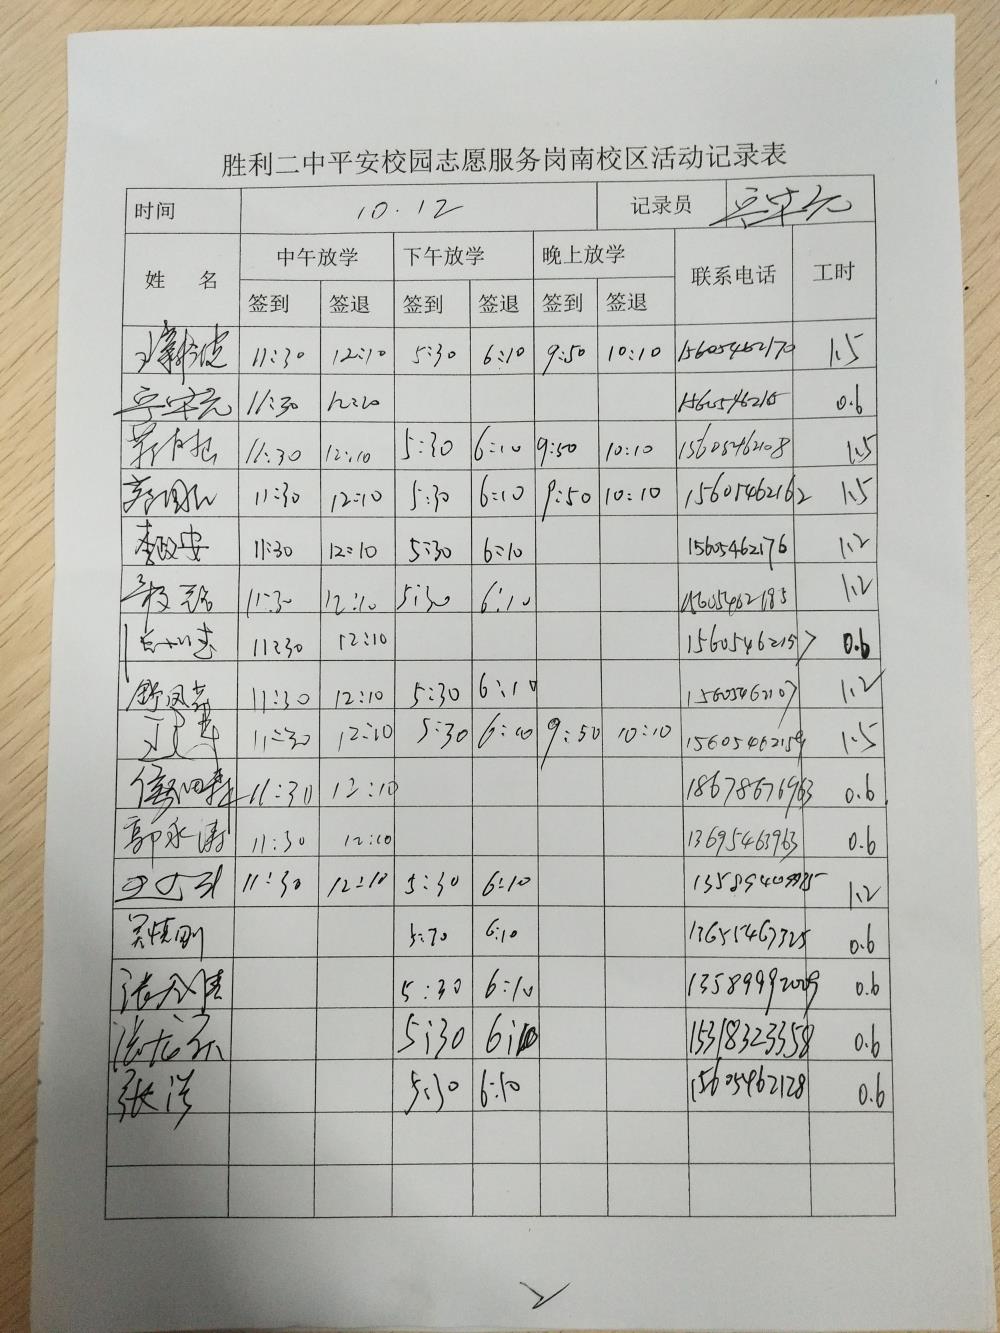 胜利二中平安校园志愿服务岗南校区活动记录表
时间 10.12 记录员
姓 名 中午放学 下午放学 晚上放学 联系电话 工时
签到 签退 签到 签退 签到 签退
11:30 12:10 5:30 6:10 9:50 10:10 15605462170 1.5
11:30 12:10 0.6
11:30 12:10 5:30 6:10 9:50 10:10 15605462108 1.5
11:30 12:10 5:30 6:10 9:50 10:10 15605462162 1.5
李政安 11:30 12:10 5:30 6:10 15605462176 1.2
11:30 12:10 5:30 6:10 15605462185 1.2
11:30 12:10 15605462157 0.6
舒风 11:30 12:10 5:30 6:10 15605462107 1.2
11:30 12:10 5:30 6:10 9:50 10:10 15605462159 1.5
11:30 12:10 18678676963 0.6
郭永涛 11:30 12:10 13695463963 0.6
11:30 12:10 5:30 6:10 1.2
吴慎刚 5:30 6:10 0.6
5:30 6:10 13589992009 0.6
5:30 6:10 15318323358 0.6
张洪 5:30 6:10 15605462128 0.6